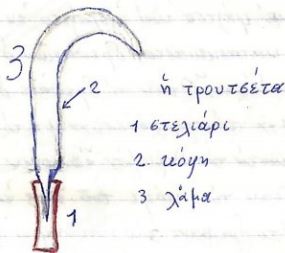 3
2
ἡ τρουτσέτα
1 στελιάρι
2 κόψη
3 λάμα
1